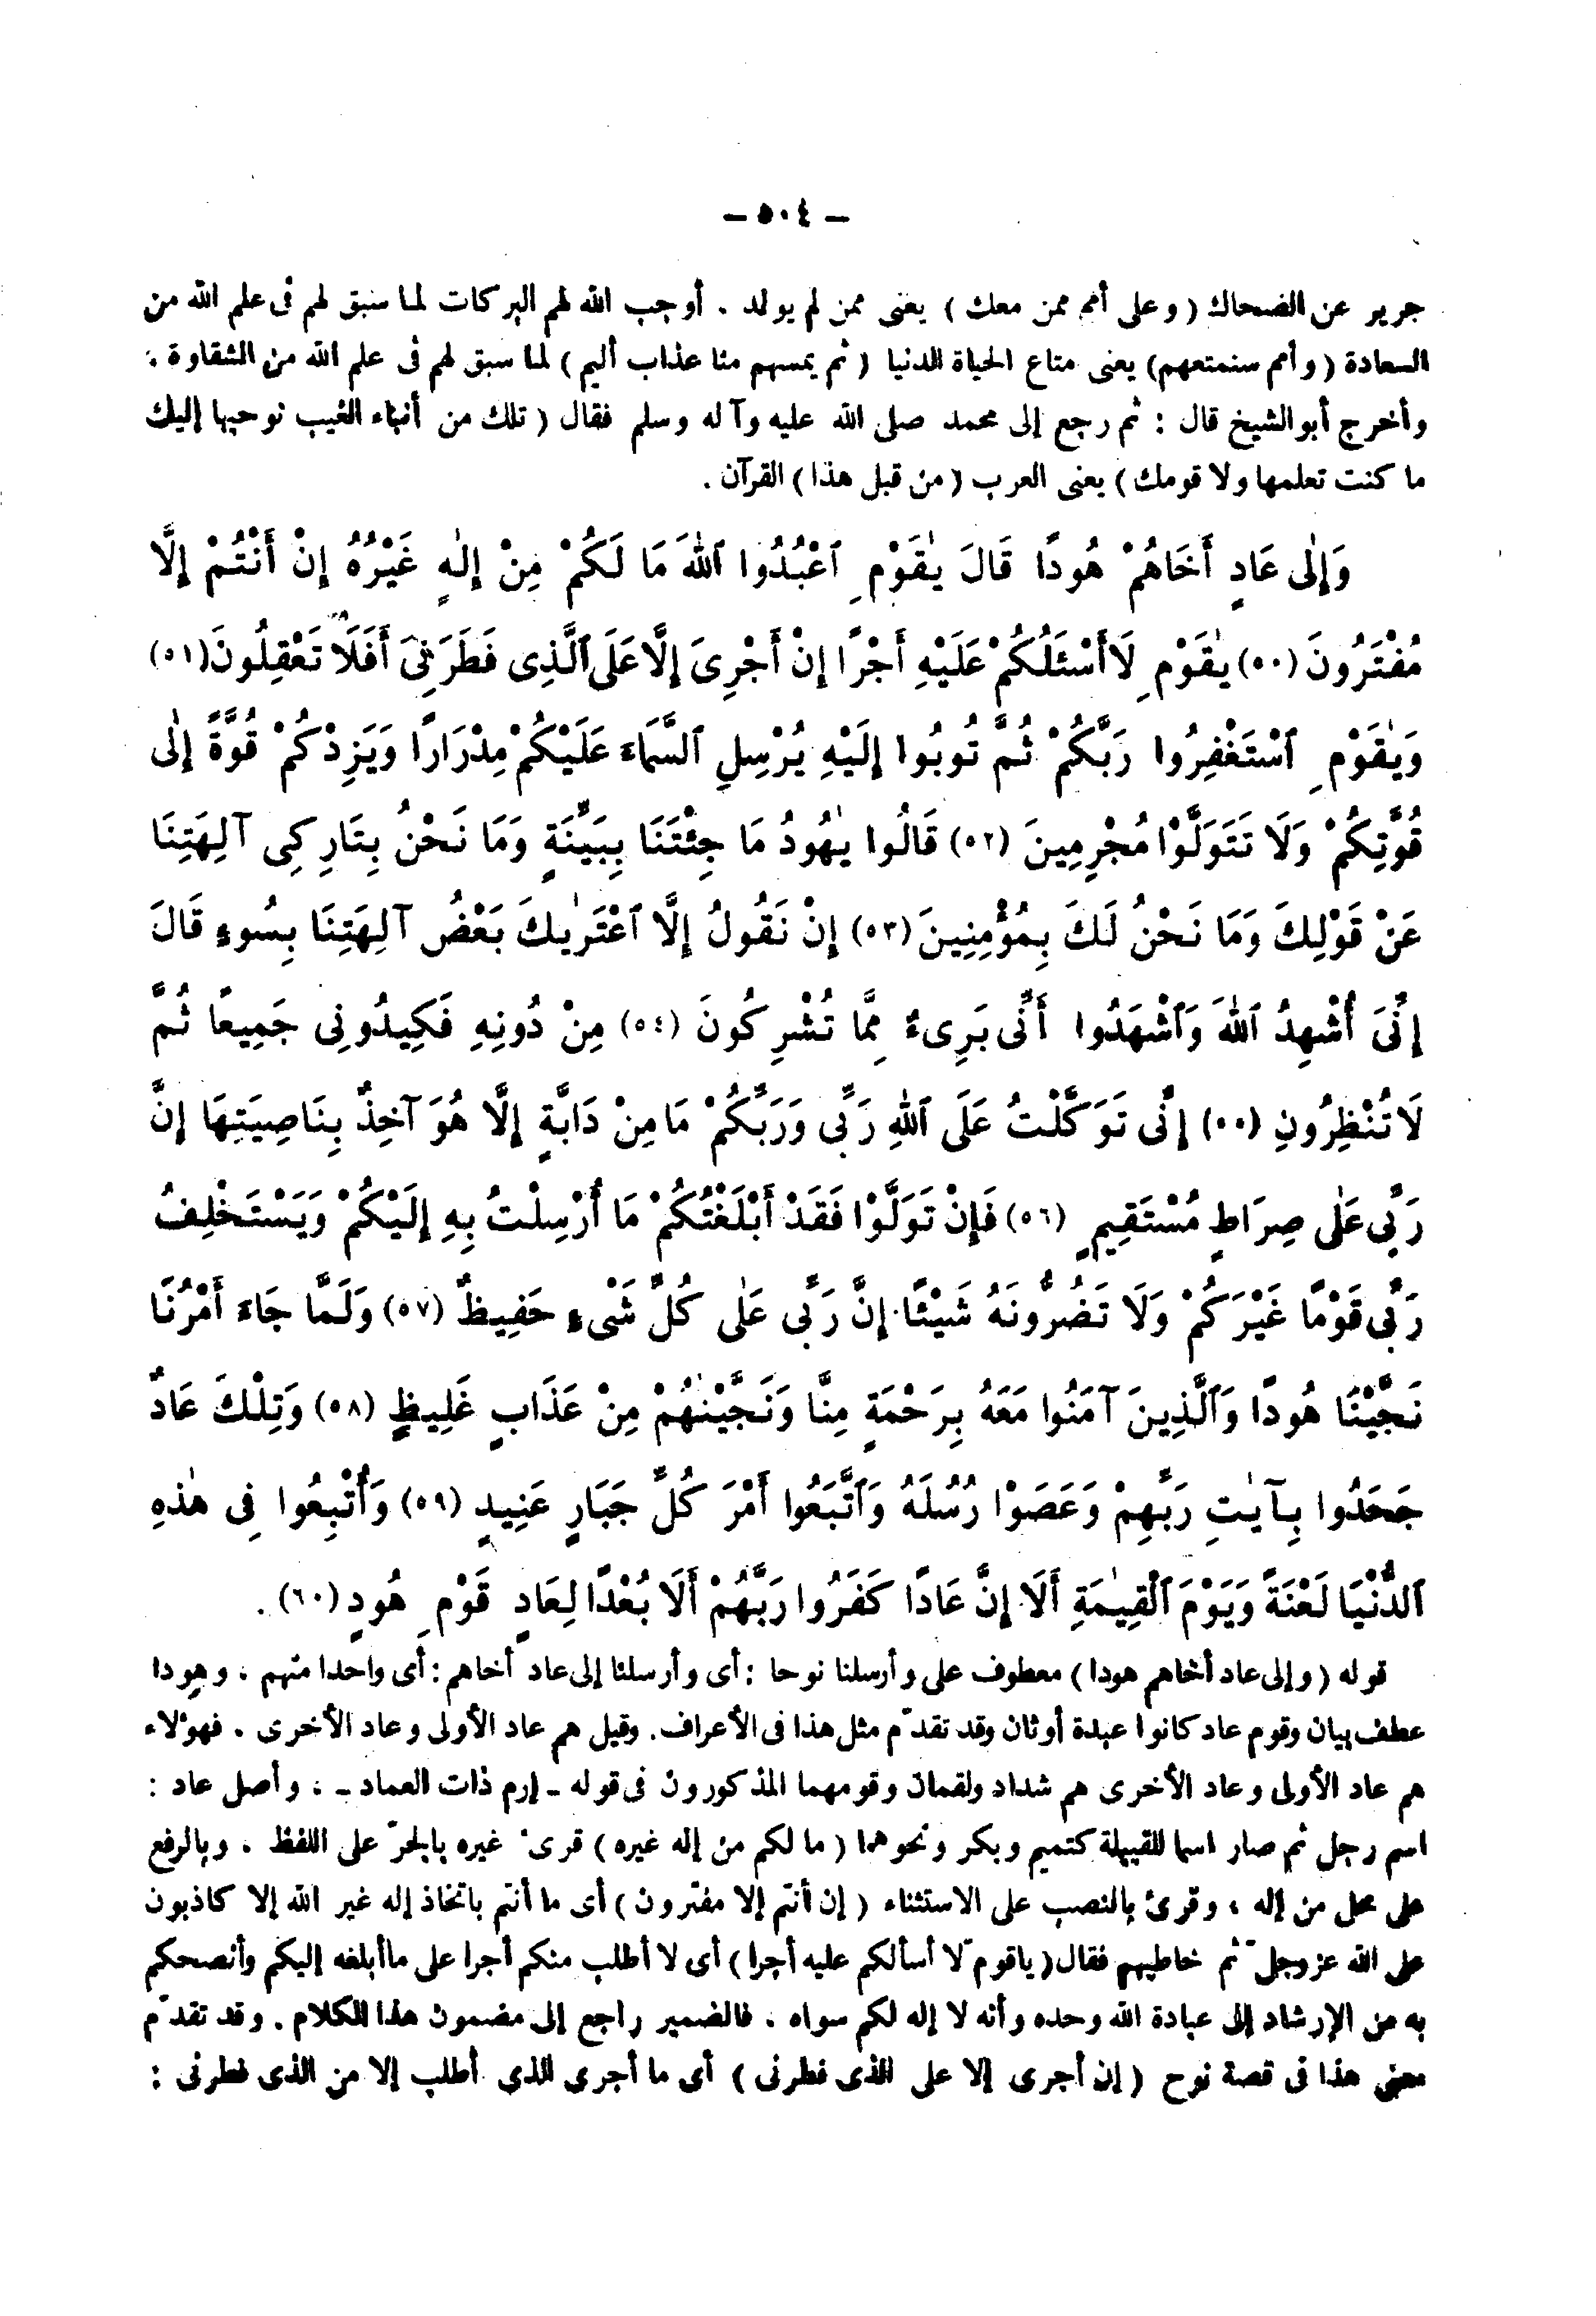 — ٥٠٤ —
جرير عن الضحاك ( وعلى أمم ممن معك ) يعنى ممن لم يولد . أوجب الله لهم البركات لما سبق لهم فى علم الله من
السعادة ( وأمم سنمتعهم ) يعنى متاع الحياة الدنيا ( ثم يمسهم منا عذاب أليم ) لما سبق لهم فى علم الله من الشقاوة .
وأخرج أبو الشيخ قال : ثم رجع إلى محمد صلى الله عليه وآله وسلم فقال ( تلك من أنباء الغيب نوحيها إليك
ما كنت تعلمها ولا قومك ) يعنى العرب ( من قبل هذا ) القرآن .
وَإِلٰى عَادٍ أَخَاهُمْ هُودًا قَالَ يٰقَوْمِ ٱعْبُدُوا ٱللهَ مَا لَكُمْ مِنْ إِلٰهٍ غَيْرُهُ إِنْ أَنْتُمْ إِلَّا
مُفْتَرُونَ (٥٠) يٰقَوْمِ لَا أَسْئَلُكُمْ عَلَيْهِ أَجْرًا إِنْ أَجْرِىَ إِلَّا عَلَى ٱلَّذِى فَطَرَنِىَ أَفَلَا تَعْقِلُونَ (٥١)
وَيٰقَوْمِ ٱسْتَغْفِرُوا رَبَّكُمْ ثُمَّ تُوبُوا إِلَيْهِ يُرْسِلِ ٱلسَّمَاءَ عَلَيْكُمْ مِدْرَارًا وَيَزِدْكُمْ قُوَّةً إِلٰى
قُوَّتِكُمْ وَلَا تَتَوَلَّوْا مُجْرِمِينَ (٥٢) قَالُوا يٰهُودُ مَا جِئْتَنَا بِبَيِّنَةٍ وَمَا نَحْنُ بِتَارِكِى آلِهَتِنَا
عَنْ قَوْلِكَ وَمَا نَحْنُ لَكَ بِمُؤْمِنِينَ (٥٣) إِنْ نَقُولُ إِلَّا ٱعْتَرٰيكَ بَعْضُ آلِهَتِنَا بِسُوءٍ قَالَ
إِنِّىَ أُشْهِدُ ٱللهَ وَٱشْهَدُوا أَنِّى بَرِىءٌ مِمَّا تُشْرِكُونَ (٥٤) مِنْ دُونِهِ فَكِيدُونِى جَمِيعًا ثُمَّ
لَا تُنْظِرُونِ (٥٥) إِنِّى تَوَكَّلْتُ عَلَى ٱللهِ رَبِّى وَرَبِّكُمْ مَا مِنْ دَابَّةٍ إِلَّا هُوَ آخِذٌ بِنَاصِيَتِهَا إِنَّ
رَبِّى عَلٰى صِرَاطٍ مُسْتَقِيمٍ (٥٦) فَإِنْ تَوَلَّوْا فَقَدْ أَبْلَغْتُكُمْ مَا أُرْسِلْتُ بِهِ إِلَيْكُمْ وَيَسْتَخْلِفُ
رَبِّى قَوْمًا غَيْرَكُمْ وَلَا تَضُرُّونَهُ شَيْئًا إِنَّ رَبِّى عَلٰى كُلِّ شَىْءٍ حَفِيظٌ (٥٧) وَلَمَّا جَاءَ أَمْرُنَا
نَجَّيْنَا هُودًا وَٱلَّذِينَ آمَنُوا مَعَهُ بِرَحْمَةٍ مِنَّا وَنَجَّيْنٰهُمْ مِنْ عَذَابٍ غَلِيظٍ (٥٨) وَتِلْكَ عَادٌ
جَحَدُوا بِآيٰتِ رَبِّهِمْ وَعَصَوْا رُسُلَهُ وَٱتَّبَعُوا أَمْرَ كُلِّ جَبَارٍ عَنِيدٍ (٥٩) وَأُتْبِعُوا فِى هٰذِهِ
ٱلدُّنْيَا لَعْنَةً وَيَوْمَ ٱلْقِيٰمَةِ أَلَا إِنَّ عَادًا كَفَرُوا رَبَّهُمْ أَلَا بُعْدًا لِعَادٍ قَوْمِ هُودٍ (٦٠) .
قوله ( وإلى عاد أخاهم هودا ) معطوف على وأرسلنا نوحا : أى وأرسلنا إلى عاد أخاهم : أى واحدا منهم ، وهودا
عطف بيان وقوم عاد كانوا عبدة أوثان وقد تقدّم مثل هذا فى الأعراف . وقيل هم عاد الأولى وعاد الأخرى . فهؤلاء
هم عاد الأولى وعاد الأخرى هم شداد ولقمان وقومهما المذكورون فى قوله ـ إرم ذات العماد ـ ، وأصل عاد :
اسم رجل ثم صار اسما للقبيلة كتميم وبكر ونحوهما ( ما لكم من إله غيره ) قرئ غيره بالجرّ على اللفظ ، وبالرفع
على محل من إله ، وقرئ بالنصب على الاستثناء ( إن أنتم إلا مفترون ) أى ما أنتم باتخاذ إله غير الله إلا كاذبون
على الله عزّ وجلّ ثم خاطبهم فقال ( ياقوم لا أسألكم عليه أجرا ) أى لا أطلب منكم أجرا على ما أبلغه إليكم وأنصحكم
به من الإرشاد إلى عبادة الله وحده وأنه لا إله لكم سواه ، فالضمير راجع إلى مضمون هذا الكلام . وقد تقدّم
معنى هذا فى قصة نوح ( إن أجرى إلا على الذى فطرنى ) أى ما أجرى الذى أطلب إلا من الذى فطرنى :